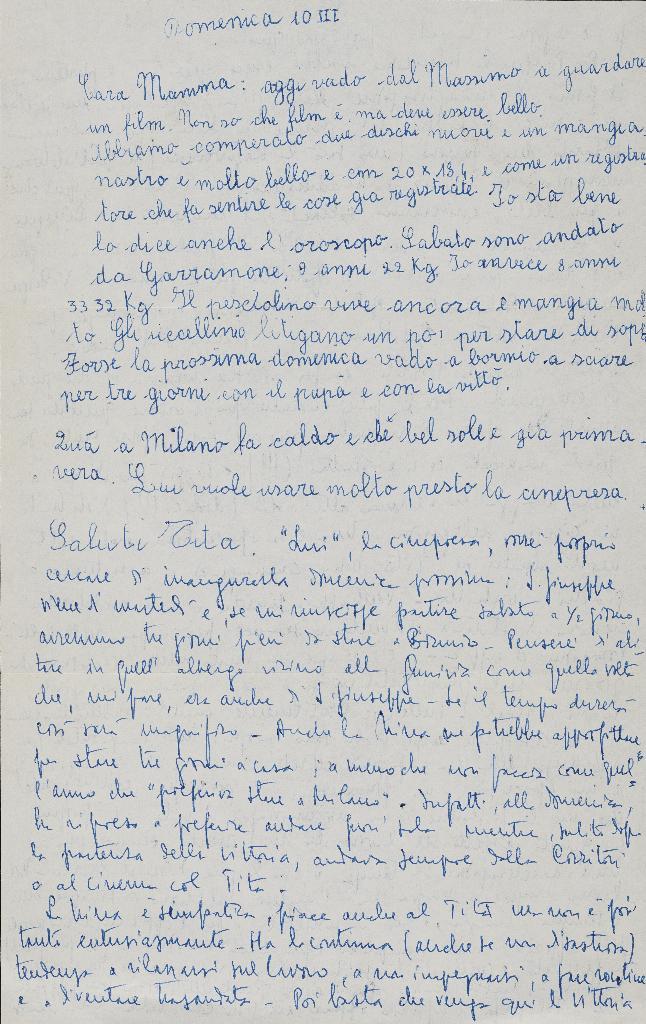 Domenica 10 III
Cara Mamma: oggi vado dal Massimo a guardare
un film. Non so che film é, ma deve essere bello.
Abbiamo comperato due dischi nuovi e un mangia
nastro e molto bello e cm 20 x 13,4, e come un registra
tore che fa sentire le cose gia registrate. Io sta bene
lo dice anche l'oroscopo. Sabato sono andato
da Garramone, 9 anni 22 Kg. Io invece 8 anni
33 32 Kg. Il pesciolino vive ancora e mangia mol
to. Gli uccellini litigano un po' per stare di sopra
Forse la prossima domenica vado a bormio a sciare
per tre giorni con il papa e con la vitto.
Quá a Milano fa caldo e c'é bel sole e gia prima-
vera. Lui vuole usare molto presto la cinepresa.
Saluti Tita. "Lui", la cinepresa, vorrei proprio
cercare di inaugurarla domenica prossima: S. Giuseppe
viene di martedì e, se mi riuscisse partire sabato a 1/2 giorno,
avremmo tre giorni pieni da stare a Bormio - Penserei d'abi
tare in quell'albergo vicino alla funivia come quella volta
che, mi pare, era anche di S. Giuseppe - Se il tempo durerà
così sarà magnifico - Anche la Nirea ne potrebbe approfittare
per stare tre giorni a casa, a meno che non faccia come quel=
l'anno che "preferiva stare a Milano". Infatti, alla domenica,
ha ripreso a preferire andare fuori sola mentre, subito dopo
la partenza della Vittoria, andava sempre dalla
o al cinema col Tita.
La è simpatica, piace anche al Tita ma non è poi
tanto entusiasmante - Ha la continua (anche se non disastrosa)
tendenza a rilassarsi sul lavoro, a non impegnarsi, a fare routine
e a diventare trasandata - Poi basta che venga qui la Vittoria